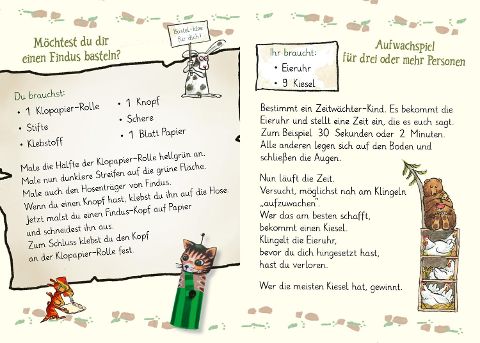 Möchtest du dir
einen Findus basteln?
Bastel-Idee
für dich!
Du brauchst:
• 1 Klopapier-Rolle
• Stifte
• Klebstoff
• 1 Knopf
• Schere
• 1 Blatt Papier
Male die Hälfte der Klopapier-Rolle hellgrün an.
Male nun dunklere Streifen auf die grüne Fläche.
Male auch den Hosenträger von Findus.
Wenn du einen Knopf hast, klebst du ihn auf die Hose.
Jetzt malst du einen Findus-Kopf auf Papier
und schneidest ihn aus.
Zum Schluss klebst du den Kopf
an der Klopapier-Rolle fest.
Aufwachspiel
für drei oder mehr Personen
Ihr braucht:
• Eieruhr
• 9 Kiesel
Bestimmt ein Zeitwächter-Kind. Es bekommt die
Eieruhr und stellt eine Zeit ein, die es euch sagt.
Zum Beispiel 30 Sekunden oder 2 Minuten.
Alle anderen legen sich auf den Boden und
schließen die Augen.
Nun läuft die Zeit.
Versucht, möglichst nah am Klingeln
„aufzuwachen".
Wer das am besten schafft,
bekommt einen Kiesel.
Klingelt die Eieruhr,
bevor du dich hingesetzt hast,
hast du verloren.
Wer die meisten Kiesel hat, gewinnt.